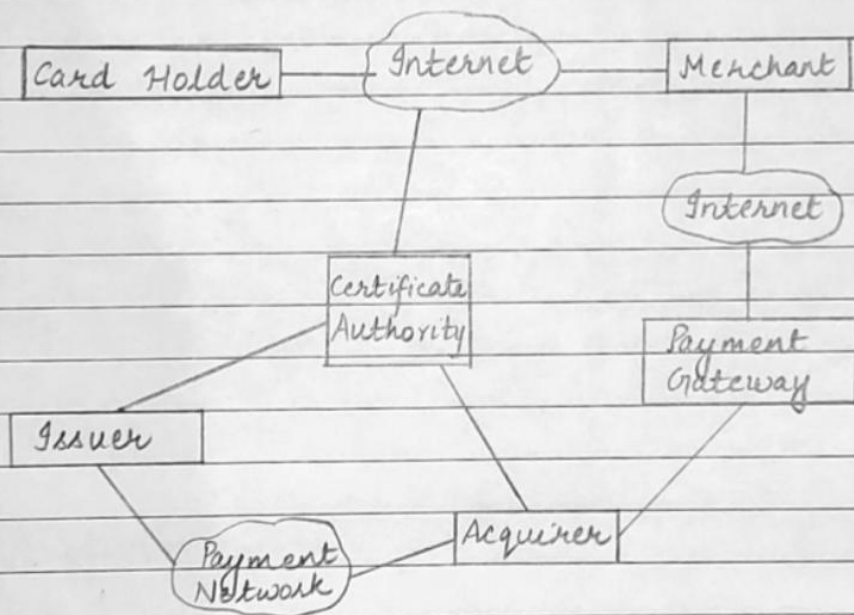 Card Holder
Internet
Merchant
Internet
Certificate
Authority
Payment
Gateway
Issuer
Acquirer
Payment
Network